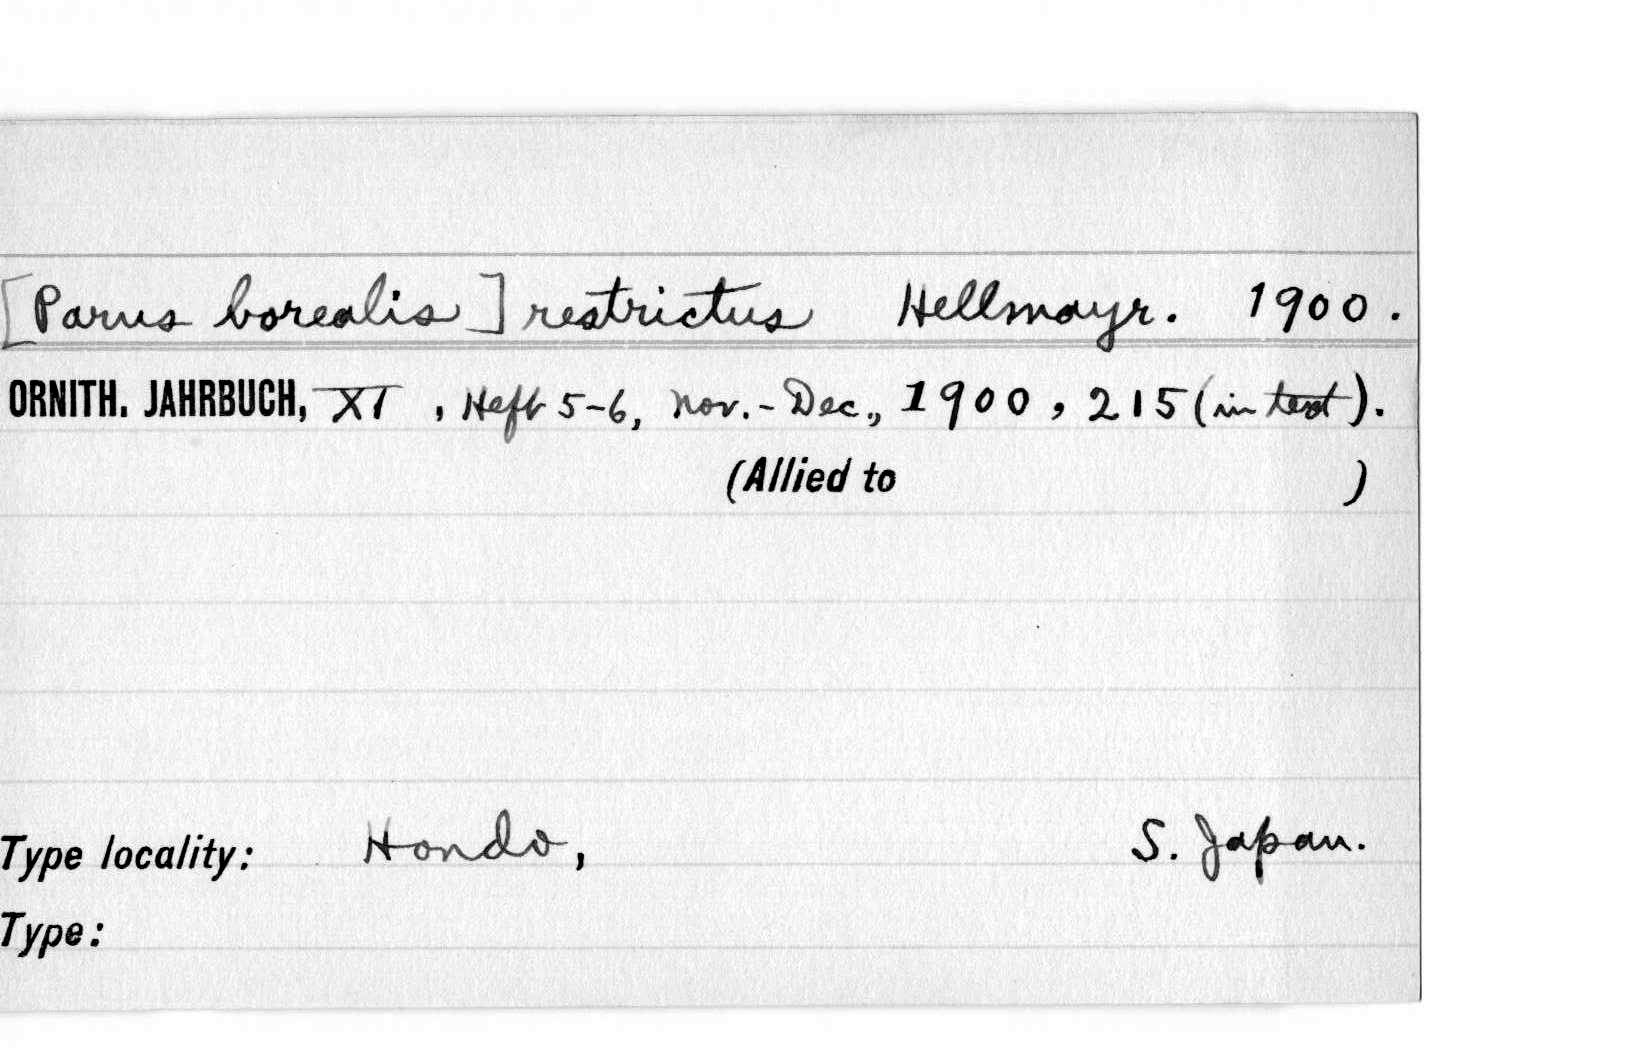 [Parus borealis] restrictus Hellmayr. 1900.
ORNITH. JAHRBUCH, XI, Heft 5-6, Nov.-Dec., 1900, 215 (in text).
(Allied to )
Type locality: Hondo, S. Japan.
Type: